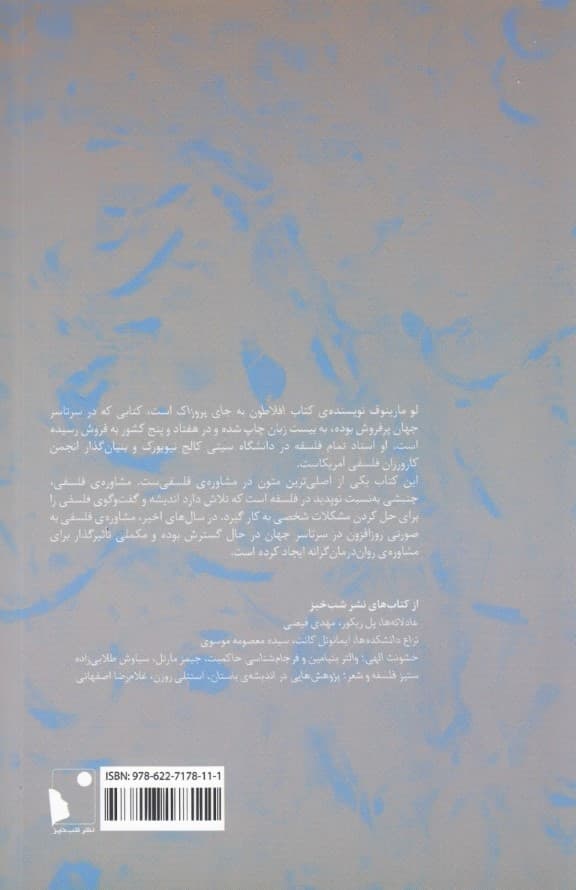 لو مارینوف نویسنده‌ی کتاب افلاطون به جای پروزاک است، کتابی که در سرتاسر
جهان پرفروش بوده، به بیست زبان چاپ شده و در هفتاد و پنج کشور به فروش رسیده
است. او استاد تمام فلسفه در دانشگاه سیتی کالج نیویورک و بنیان‌گذار انجمن
کارورزان فلسفی آمریکاست.
این کتاب یکی از اصلی‌ترین متون در مشاوره‌ی فلسفی‌ست. مشاوره‌ی فلسفی،
جنبشی به‌نسبت نوپدید در فلسفه است که تلاش دارد اندیشه و گفت‌وگوی فلسفی را
برای حل کردن مشکلات شخصی به کار گیرد. در سال‌های اخیر، مشاوره‌ی فلسفی به
صورتی روزافزون در سرتاسر جهان در حال گسترش بوده و مکملی تأثیرگذار برای
مشاوره‌ی روان‌درمان‌گرانه ایجاد کرده است.
از کتاب‌های نشر شب‌خیز
عادلانه‌ها، پل ریکور، مهدی فیضی
نزاع دانشکده‌ها، ایمانوئل کانت، سیده معصومه موسوی
خشونت الهی: والتر بنیامین و فرجام‌شناسی حاکمیت، جیمز مارتل، سیاوش طلایی‌زاده
ستیز فلسفه و شعر: پژوهش‌هایی در اندیشه‌ی باستان، استنلی روزن، غلامرضا اصفهانی
ISBN: 978-622-7178-11-1
نشر شب‌خیز